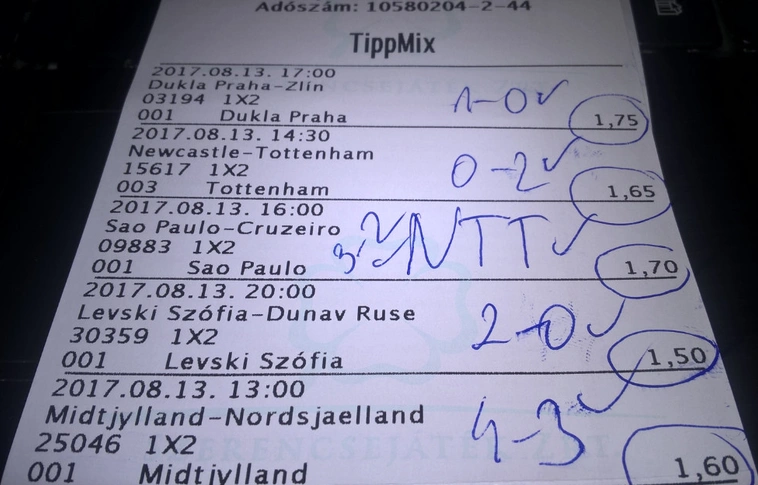 Adószám: 10580204-2-44
TippMix
2017.08.13. 17:00
Dukla Praha-Zlin
03194 1X2
001 Dukla Praha 1,75
1-0
2017.08.13. 14:30
Newcastle-Tottenham
15617 1X2
003 Tottenham 1,65
0-2
2017.08.13. 16:00
Sao Paulo-Cruzeiro
09883 1X2
001 Sao Paulo 1,70
NTT
2017.08.13. 20:00
Levski Szófia-Dunav Ruse
30359 1X2
001 Levski Szófia 1,50
2-0
2017.08.13. 13:00
Midtjylland-Nordsjaelland
25046 1X2
001 Midtjylland 1,60
4-3